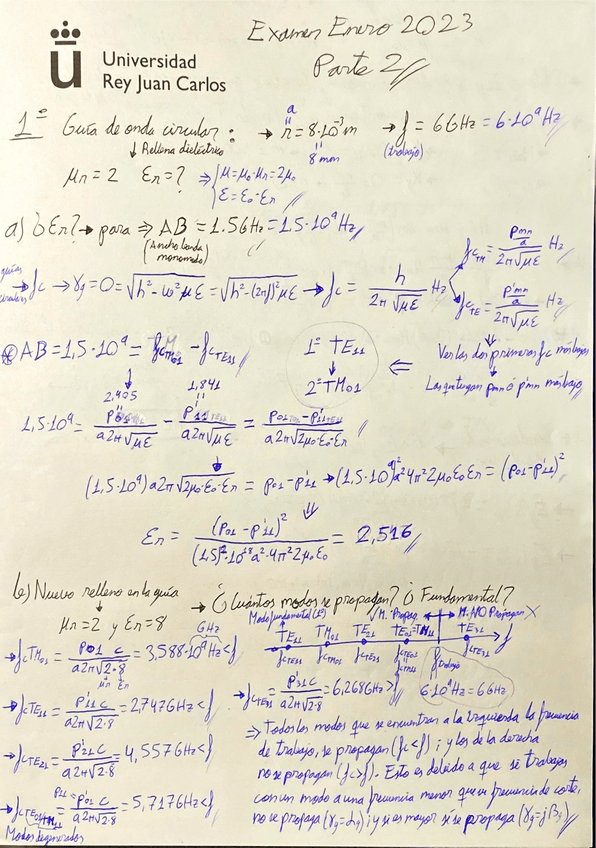 Examen Enero 2023
Parte 2//
Universidad
Rey Juan Carlos
1º Guía de onda circular: → r = 8·10⁻³ m → f = 6GHz = 6·10⁹ Hz
a
8 mm
(trabajo)
↓ Rellena dieléctrico
μr = 2 εr = ? ⇒ { μ = μ₀·μr = 2μ₀
ε = ε₀·εr
a) ¿εr? → para ⇒ AB = 1.5GHz = 1,5·10⁹ Hz
(Ancho banda monomodo)
guías circulares → fc → γg = 0 = √(h² - ω²με) = √(h² - (2πf)²με) → fc = h / (2π√(με)) Hz
fcTM = (pnm/a) / (2π√(με)) Hz
fcTE = (p'nm/a) / (2π√(με)) Hz
AB = 1,5·10⁹ = fcTM01 - fcTE11
1º TE11
↓
2º TM01
⇐ Ver las dos primeras fc más bajas
↓
Las que tengan pnm ó p'nm más bajo
2,405 1,841
1,5·10⁹ = p01 / (a2π√(με)) - p'11 / (a2π√(με)) = (p01 - p'11) / (a2π√(2μ₀·ε₀·εr))
(1,5·10⁹) a2π√(2μ₀·ε₀·εr) = p01 - p'11 → (1,5·10⁹)² a² 4π² 2μ₀ε₀εr = (p01 - p'11)²
εr = (p01 - p'11)² / ((1,5)²·10¹⁸ a²·4π² 2μ₀ε₀) = 2,516
b) Nuevo relleno en la guía → ¿Cuántos modos se propagan? ¿Fundamental?
↓
μr = 2 y εr = 8
Modo fundamental (1º) √ M. Propag. ← → M. NO Propagan X
TE11 TM01 TE21 TE01=TM11 TE31 f
fcTE11 fcTM01 fcTE21 fcTE01 fcTM11 ftrabajo fcTE31
6·10⁹ Hz = 6GHz
→ fcTM01 = p01 c / (a2π√(2·8)) = 3,588·10⁹ Hz < f
GHz
μr εr
→ fcTE11 = p'11 c / (a2π√(2·8)) = 2,747GHz < f
→ fcTE21 = p'21 c / (a2π√(2·8)) = 4,557GHz < f
→ fcTE01=TM11 = p'01 c / (a2π√(2·8)) = 5,717GHz < f
p11 =
Modos degenerados
→ fcTE31 = p'31 c / (a2π√(2·8)) = 6,268GHz > f
⇒ Todos los modos que se encuentran a la izquierda la frecuencia
de trabajo, se propagan (fc<f); y los de la derecha
no se propagan (fc>f). Esto es debido a que si trabajas
con un modo a una frecuencia menor que su frecuencia de corte,
no se propaga (γg=αg); y si es mayor si se propaga (γg=jβg)